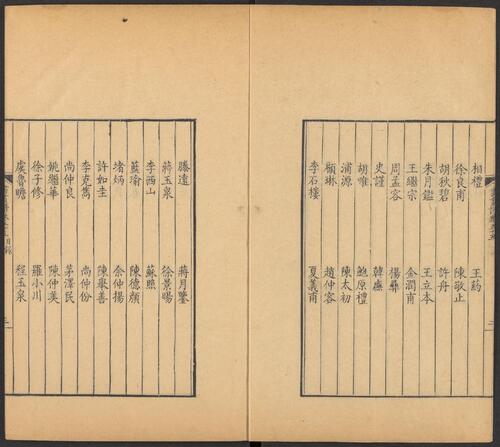 相禮 王
徐良甫 陳敬止
胡秋碧 許舟
朱月鑑 王立本
王繼宗 金潤甫
周孟容 楊彝
史謹 韓
胡唯 鮑原禮
浦源 陳太初
顧琳 趙仲容
李石樓 夏義甫
滕遠 蔣月
蔣玉泉 徐景暘
李西山 蘇照
藍瑜 陳德顏
堵炳 余仲揚
許如圭 陳善
李克雋 尚仲份
尚仲良 茅澤民
姚繼華 陳仲美
徐子修 羅小川
虞魯瞻 程玉泉
目錄 三